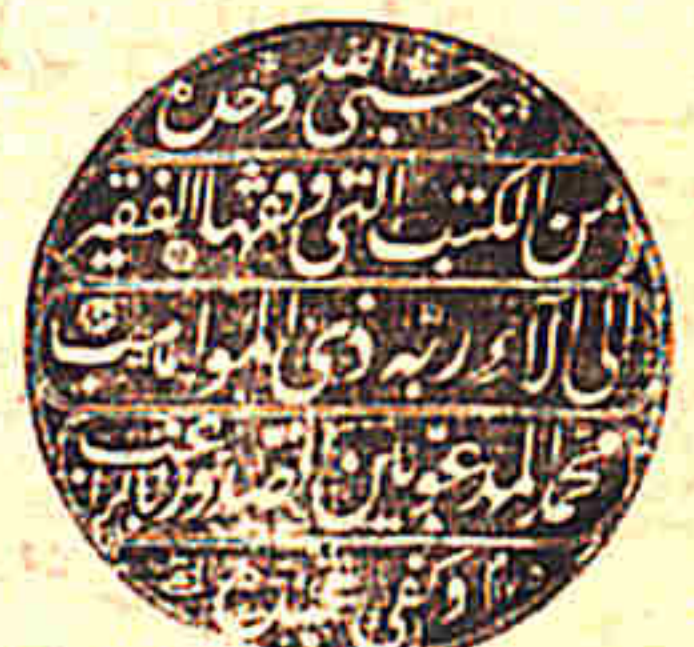 حسبي الله وحده
من الكتب التي وقفها الفقير
الى آلاء ربه ذي المواهب
محمد المدعو بين الصدور
وكفى